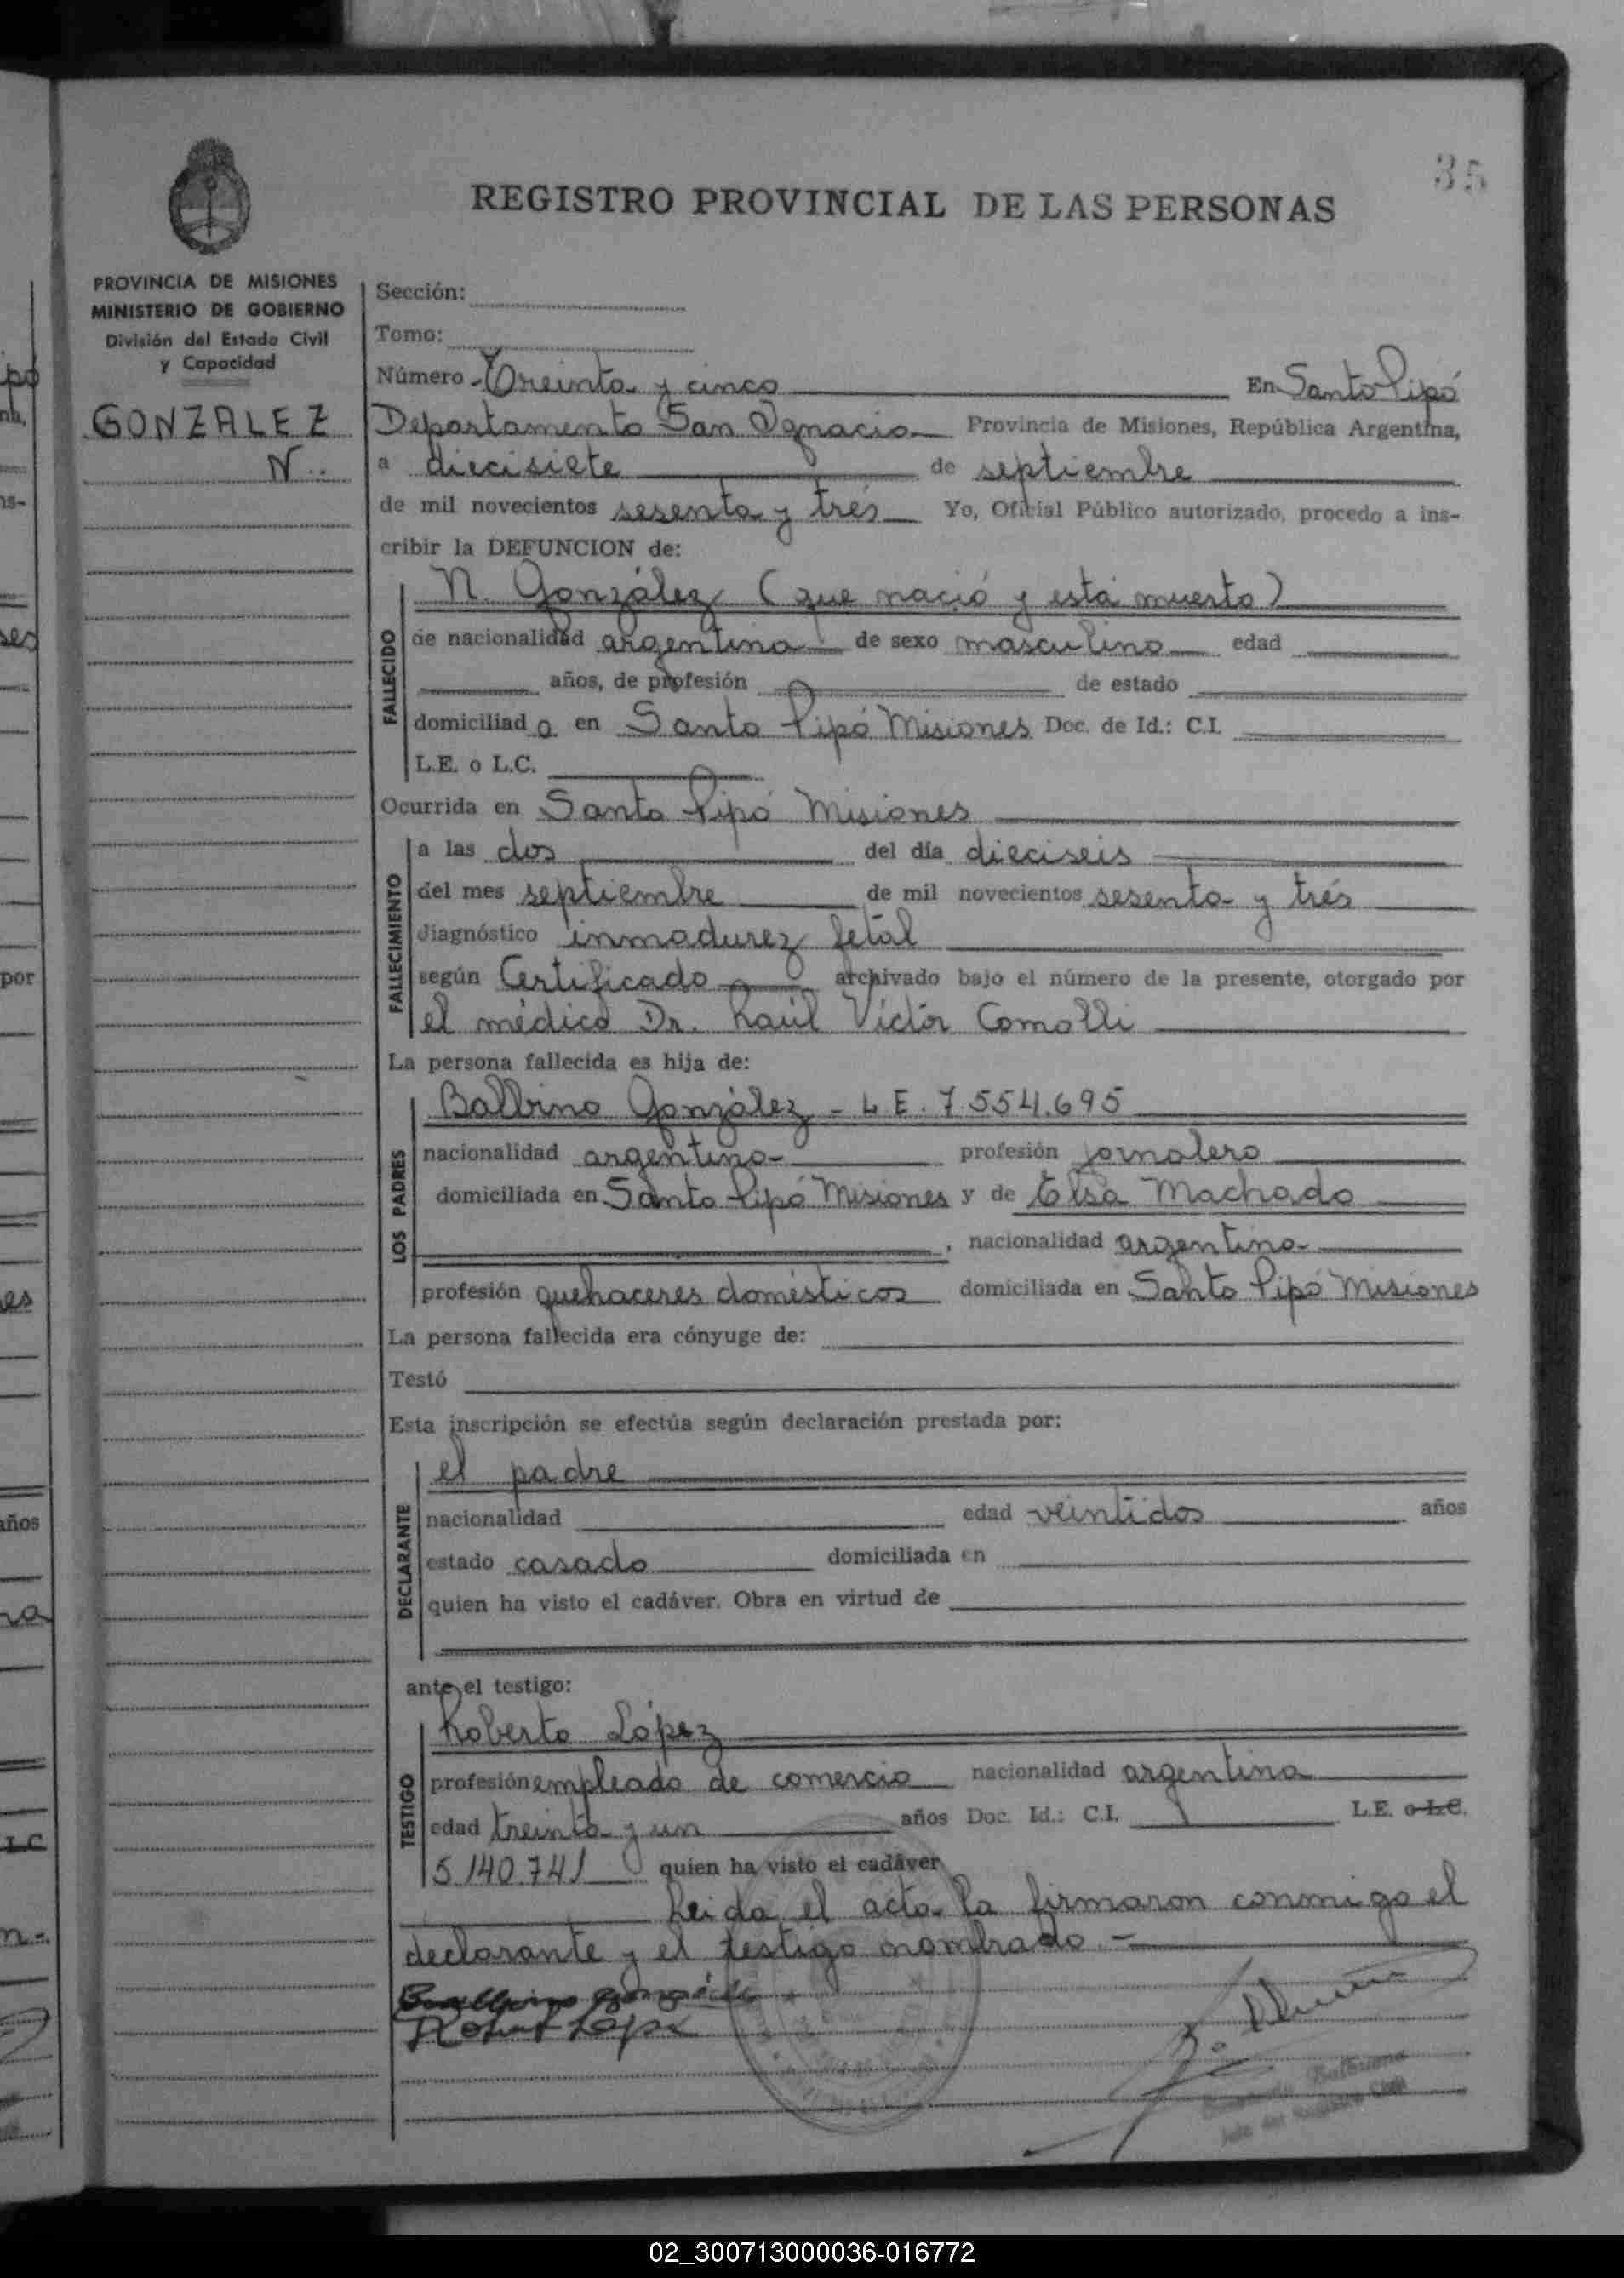 35
REGISTRO PROVINCIAL DE LAS PERSONAS
PROVINCIA DE MISIONES
MINISTERIO DE GOBIERNO
División del Estado Civil
y Capacidad
GONZALEZ
N..
Sección:
Tomo:
Número Treinta y cinco En Santo Pipó
Departamento San Ignacio Provincia de Misiones, República Argentina,
a diecisiete de septiembre
de mil novecientos sesenta y trés Yo, Oficial Público autorizado, procedo a ins-
cribir la DEFUNCION de:
FALLECIDO
N. González (que nació y está muerto)
de nacionalidad argentina de sexo masculino edad
años, de profesión de estado
domiciliad o en Santo Pipó Misiones Doc. de Id.: C.I.
L.E. o L.C.
Ocurrida en Santo Pipó Misiones
FALLECIMIENTO
a las dos del día dieciseis
del mes septiembre de mil novecientos sesenta y trés
diagnóstico inmadurez fetal
según Certificado archivado bajo el número de la presente, otorgado por
el médico Dr. Raúl Víctor Comolli
La persona fallecida es hija de:
LOS PADRES
Balbino González - L E. 7.554.695
nacionalidad argentino- profesión jornalero
domiciliada en Santo Pipó Misiones y de Elsa Machado
, nacionalidad argentina
profesión quehaceres domésticos domiciliada en Santo Pipó Misiones
La persona fallecida era cónyuge de:
Testó
Esta inscripción se efectúa según declaración prestada por:
DECLARANTE
el padre
nacionalidad edad veintidos años
estado casado domiciliada en
quien ha visto el cadáver. Obra en virtud de
ante el testigo:
TESTIGO
Roberto López
profesión empleado de comercio nacionalidad argentina
edad treinta y un años Doc. Id.: C.I. L.E. o L.C.
5.140.741 quien ha visto el cadáver
Leida el acta la firmaron conmigo el
declarante y el testigo nombrado.-
Balbino González
Robert Lopez
Jefe del Registro Civil
02_300713000036-016772